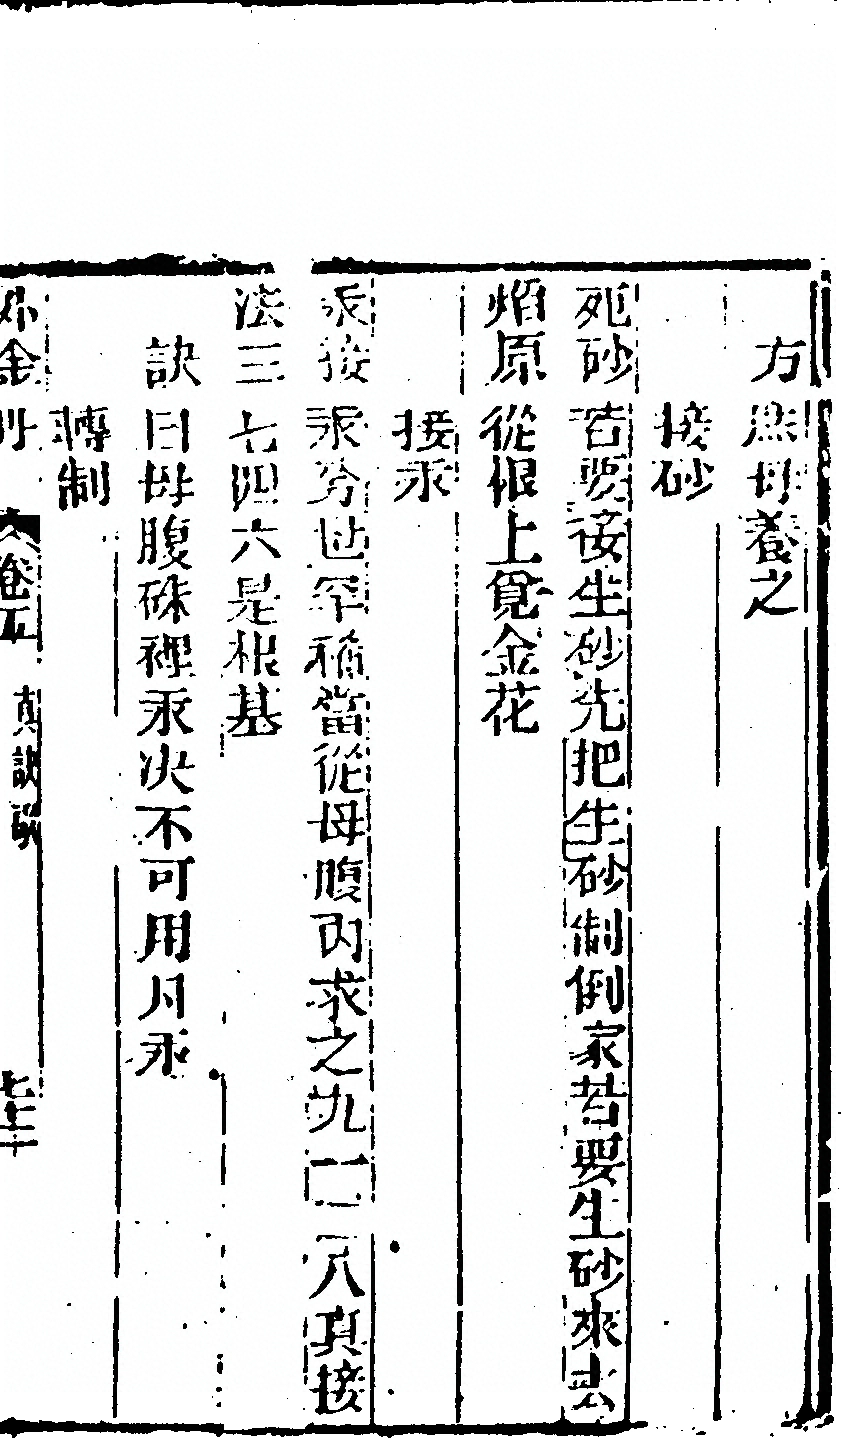 方為母養之
接砂
死砂若要接生砂先把生砂制倒家若要生砂來去
焰原從根上覓金花
接汞
汞接汞分世罕稱當從母腹內求之九一二八真接
法三七四六是根基
訣曰母腹硃裡汞决不可用凡汞
轉制
外金丹 卷五 真訣